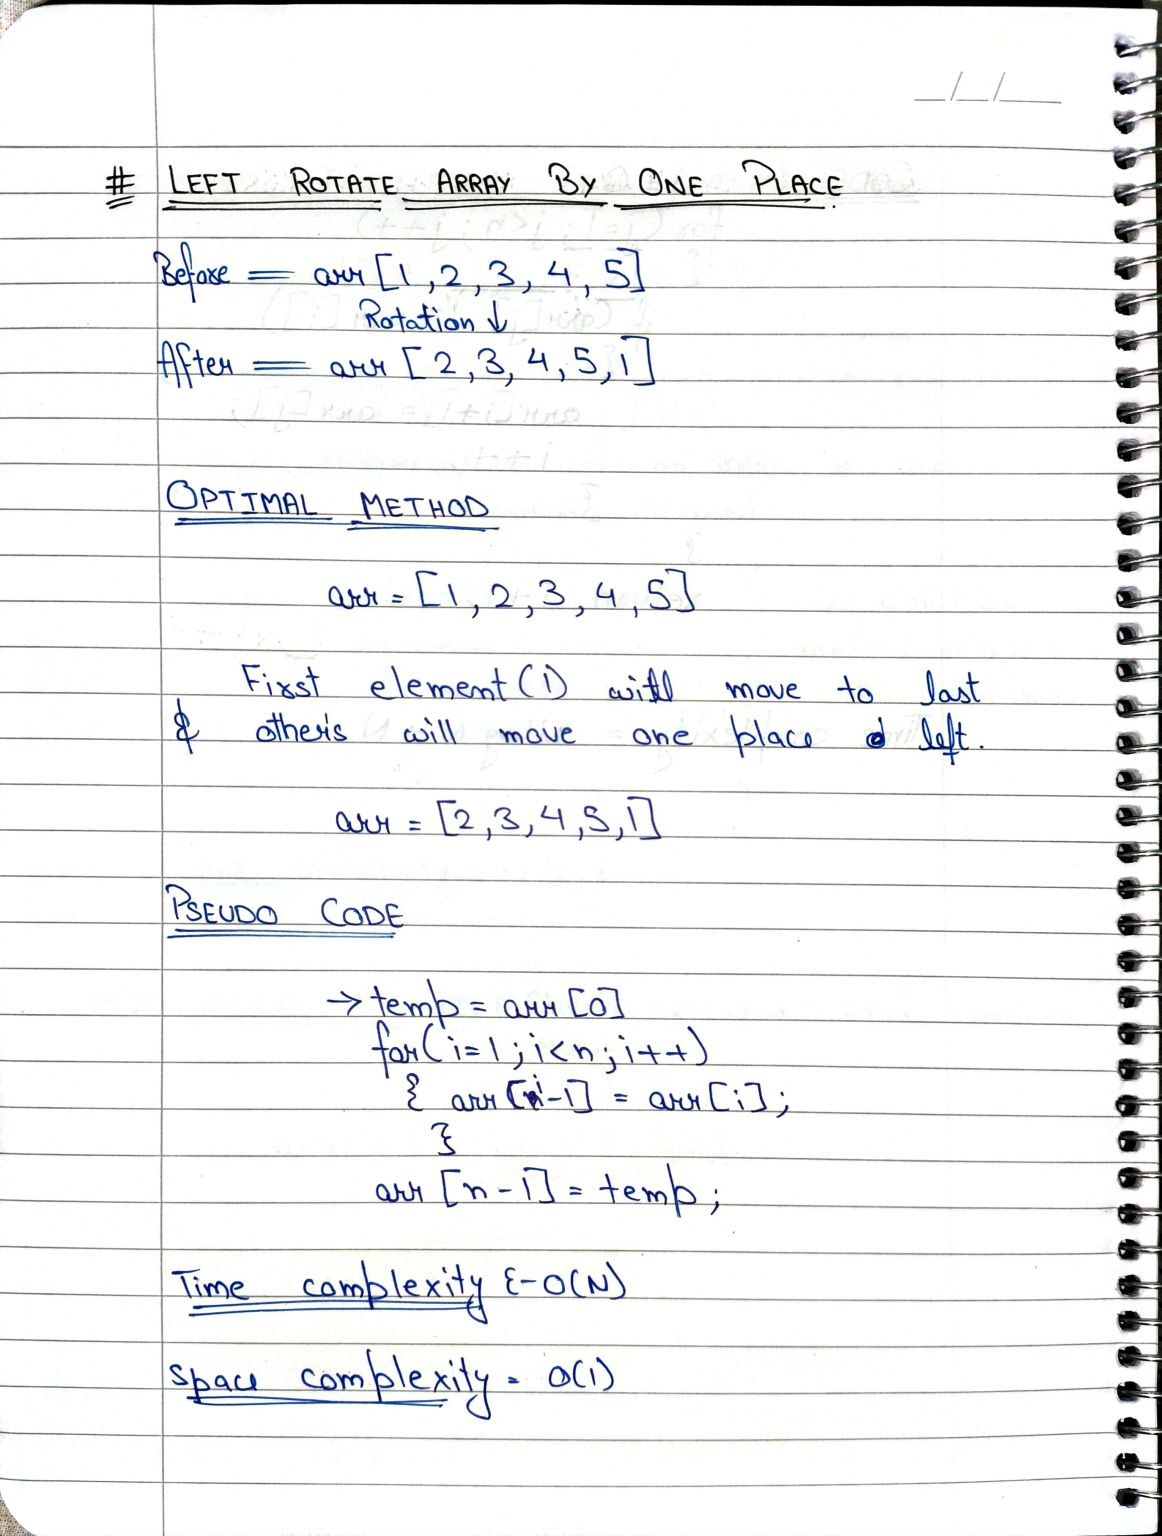 # LEFT ROTATE ARRAY BY ONE PLACE.
Before = arr [1, 2, 3, 4, 5]
Rotation ↓
After = arr [2, 3, 4, 5, 1]
OPTIMAL METHOD
arr = [1, 2, 3, 4, 5]
First element (1) will move to last
& other's will move one place left.
arr = [2, 3, 4, 5, 1]
PSEUDO CODE
→ temp = arr [0]
for (i=1; i<n; i++)
{ arr [i-1] = arr [i];
}
arr [n-1] = temp;
Time complexity :- O(N)
Space complexity = O(1)